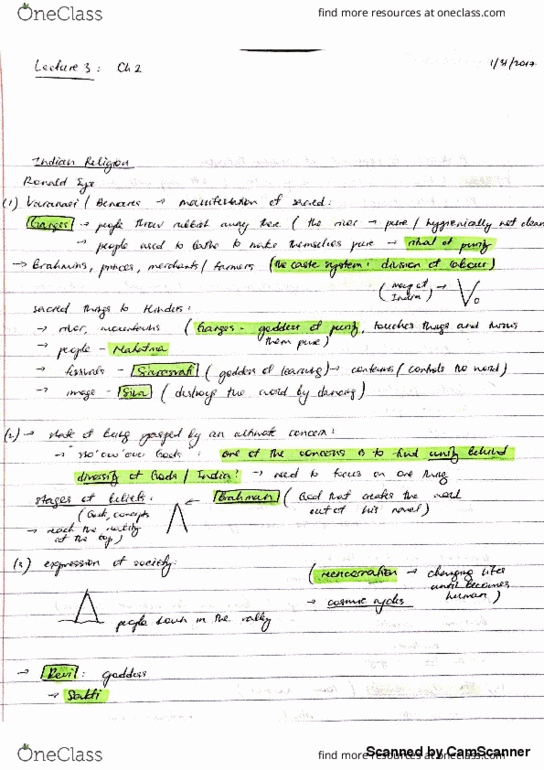 OneClass
find more resources at oneclass.com
Lecture 3: Ch 2
1/31/2017
Indian Religion
Ronald
(1) Varanasi / Benares → manifestation of sacred:
Ganges → people throw rubbish away there (the river → pure / hygienically not clean
→ people used to bathe to make themselves pure → ritual of purity
→ Brahmins, princes, merchants / farmers (the caste system: division of labour)
(map of India) →
sacred things to Hindus:
→ river, mountains (Ganges - goddess of purity, touches things and turns them pure)
→ people - Mahatma
→ festivals - (goddess of learning) → contains / controls the word)
→ image - Siva (destroys the world by dancing)
(2) → state of being grasped by an ultimate concern:
Gods: one of the concerns is to find unity behind
diversity of Gods / India! → need to focus on one thing
stages of beliefs: ← Brahman (God that creates the world
(Gods, concepts out of his navel)
→ reach the at the top)
(3) expression of society:
(reincarnation → changing lives until becomes human)
→ cosmic cycles
people down in the valley
→ Devi: goddess
→ Sakti
OneClass
find more resources at oneclass.com
Scanned by CamScanner